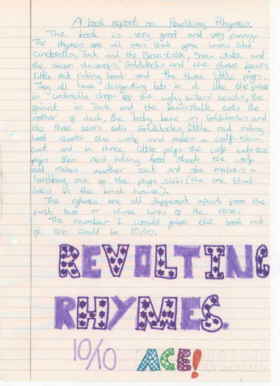 A book report on Revolting Rhymes.
The book is very good and very funny.
The rhymes are all very well done, some like
Cinderella, Jack and the Beanstalk, Snow White and
the seven dwarfs, Goldilocks and the three bears,
Little red riding hood and the three little pigs.
They all have disgusting bits in it like the
underside drop of the ugly sisters heads, the
giant in Jack and the beanstalk eats the
mother of Jack, the baby bear in Goldilocks and
the three bears eats Goldilocks, little red riding
hood shoots the wolf and makes a wolf-skin
coat and in three little pigs the wolf eats two
pigs then red riding hood shoots the wolf
and makes another coat and also makes a
travelling case of the pigs skin (the one that
lives in the brick house).
The rhymes are all different apart from the
first two or three lines of the
The number I would give this book out
of ten would be 10/10.
REVOLTING
RHYMES.
10/10 ACE!